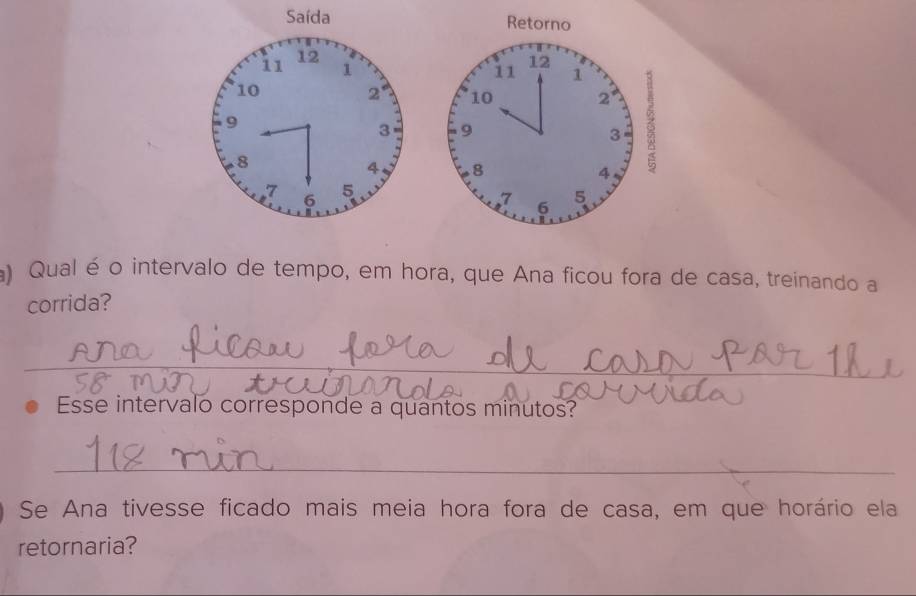 Saída
Retorno
12
11
1
10
2
9
3
8
4
7
5
6
12
11
1
10
2
9
3
8
4
7
5
6
ASTA DESIGN/Shutterstock
a) Qual é o intervalo de tempo, em hora, que Ana ficou fora de casa, treinando a
corrida?
Ana ficou fora de casa por 1h e
58 min treinando a corrida
• Esse intervalo corresponde a quantos minutos?
118 min
) Se Ana tivesse ficado mais meia hora fora de casa, em que horário ela
retornaria?